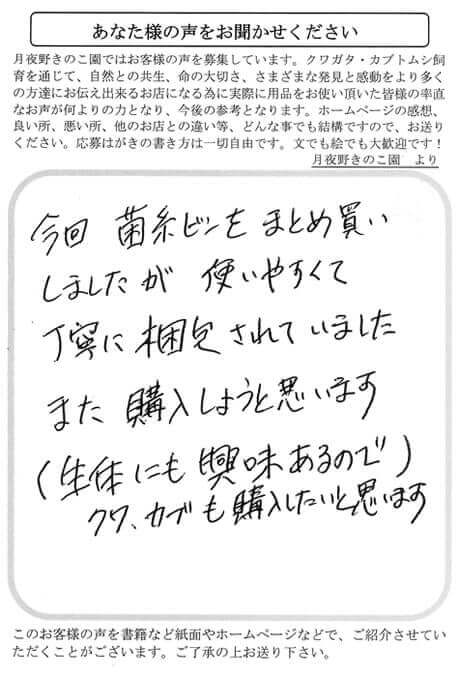 あなた様の声をお聞かせください
月夜野きのこ園ではお客様の声を募集しています。クワガタ・カブトムシ飼
育を通じて、自然との共生、命の大切さ、さまざまな発見と感動をより多く
の方達にお伝え出来るお店になる為に実際に用品をお使い頂いた皆様の率直
なお声が何よりの力となり、今後の参考となります。ホームページの感想、
良い所、悪い所、他のお店との違い等、どんな事でも結構ですので、お送り
ください。応募はがきの書き方は一切自由です。文でも絵でも大歓迎です！
月夜野きのこ園　より
今回 菌糸ビンを まとめ買い
しましたが 使いやすくて
丁寧に 梱包されていました
また 購入しようと思います
(生体にも 興味あるので)
クワ、カブも購入したいと思います
このお客様の声を書籍など紙面やホームページなどで、ご紹介させてい
ただくことがございます。ご了承の上お送り下さい。